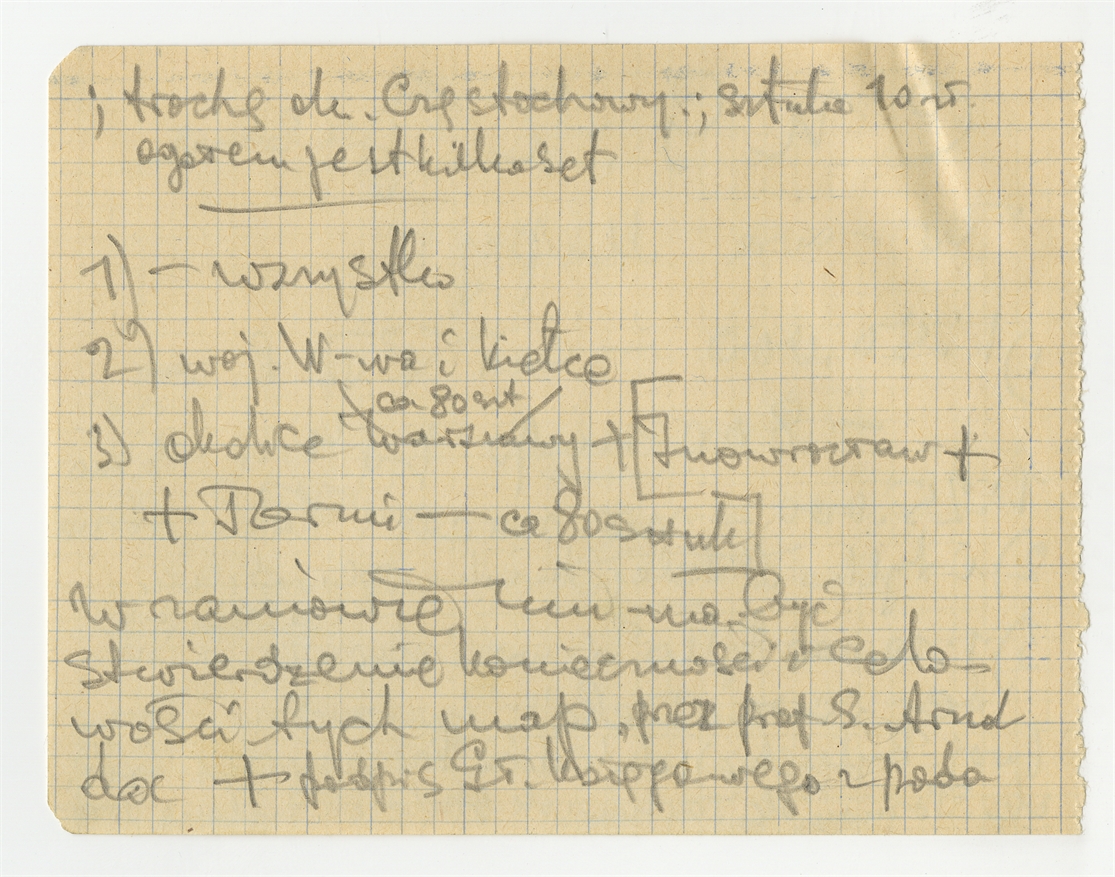 ; trochę ok. Częstochowy.; sztuka 10 zł.
ogółem jest kilkaset
1) – wszystko
2) woj. W-wa i Kielce
ca 80 szt
3) okolice Warszawy + [Inowrocław +
+ Toruń — ca 80 sztuk]
W zamówie ma być
stwierdzenie konieczności i celo-
wości tych map, przez prof S. Arnol
da + podpis Gł. Księgowego z poda